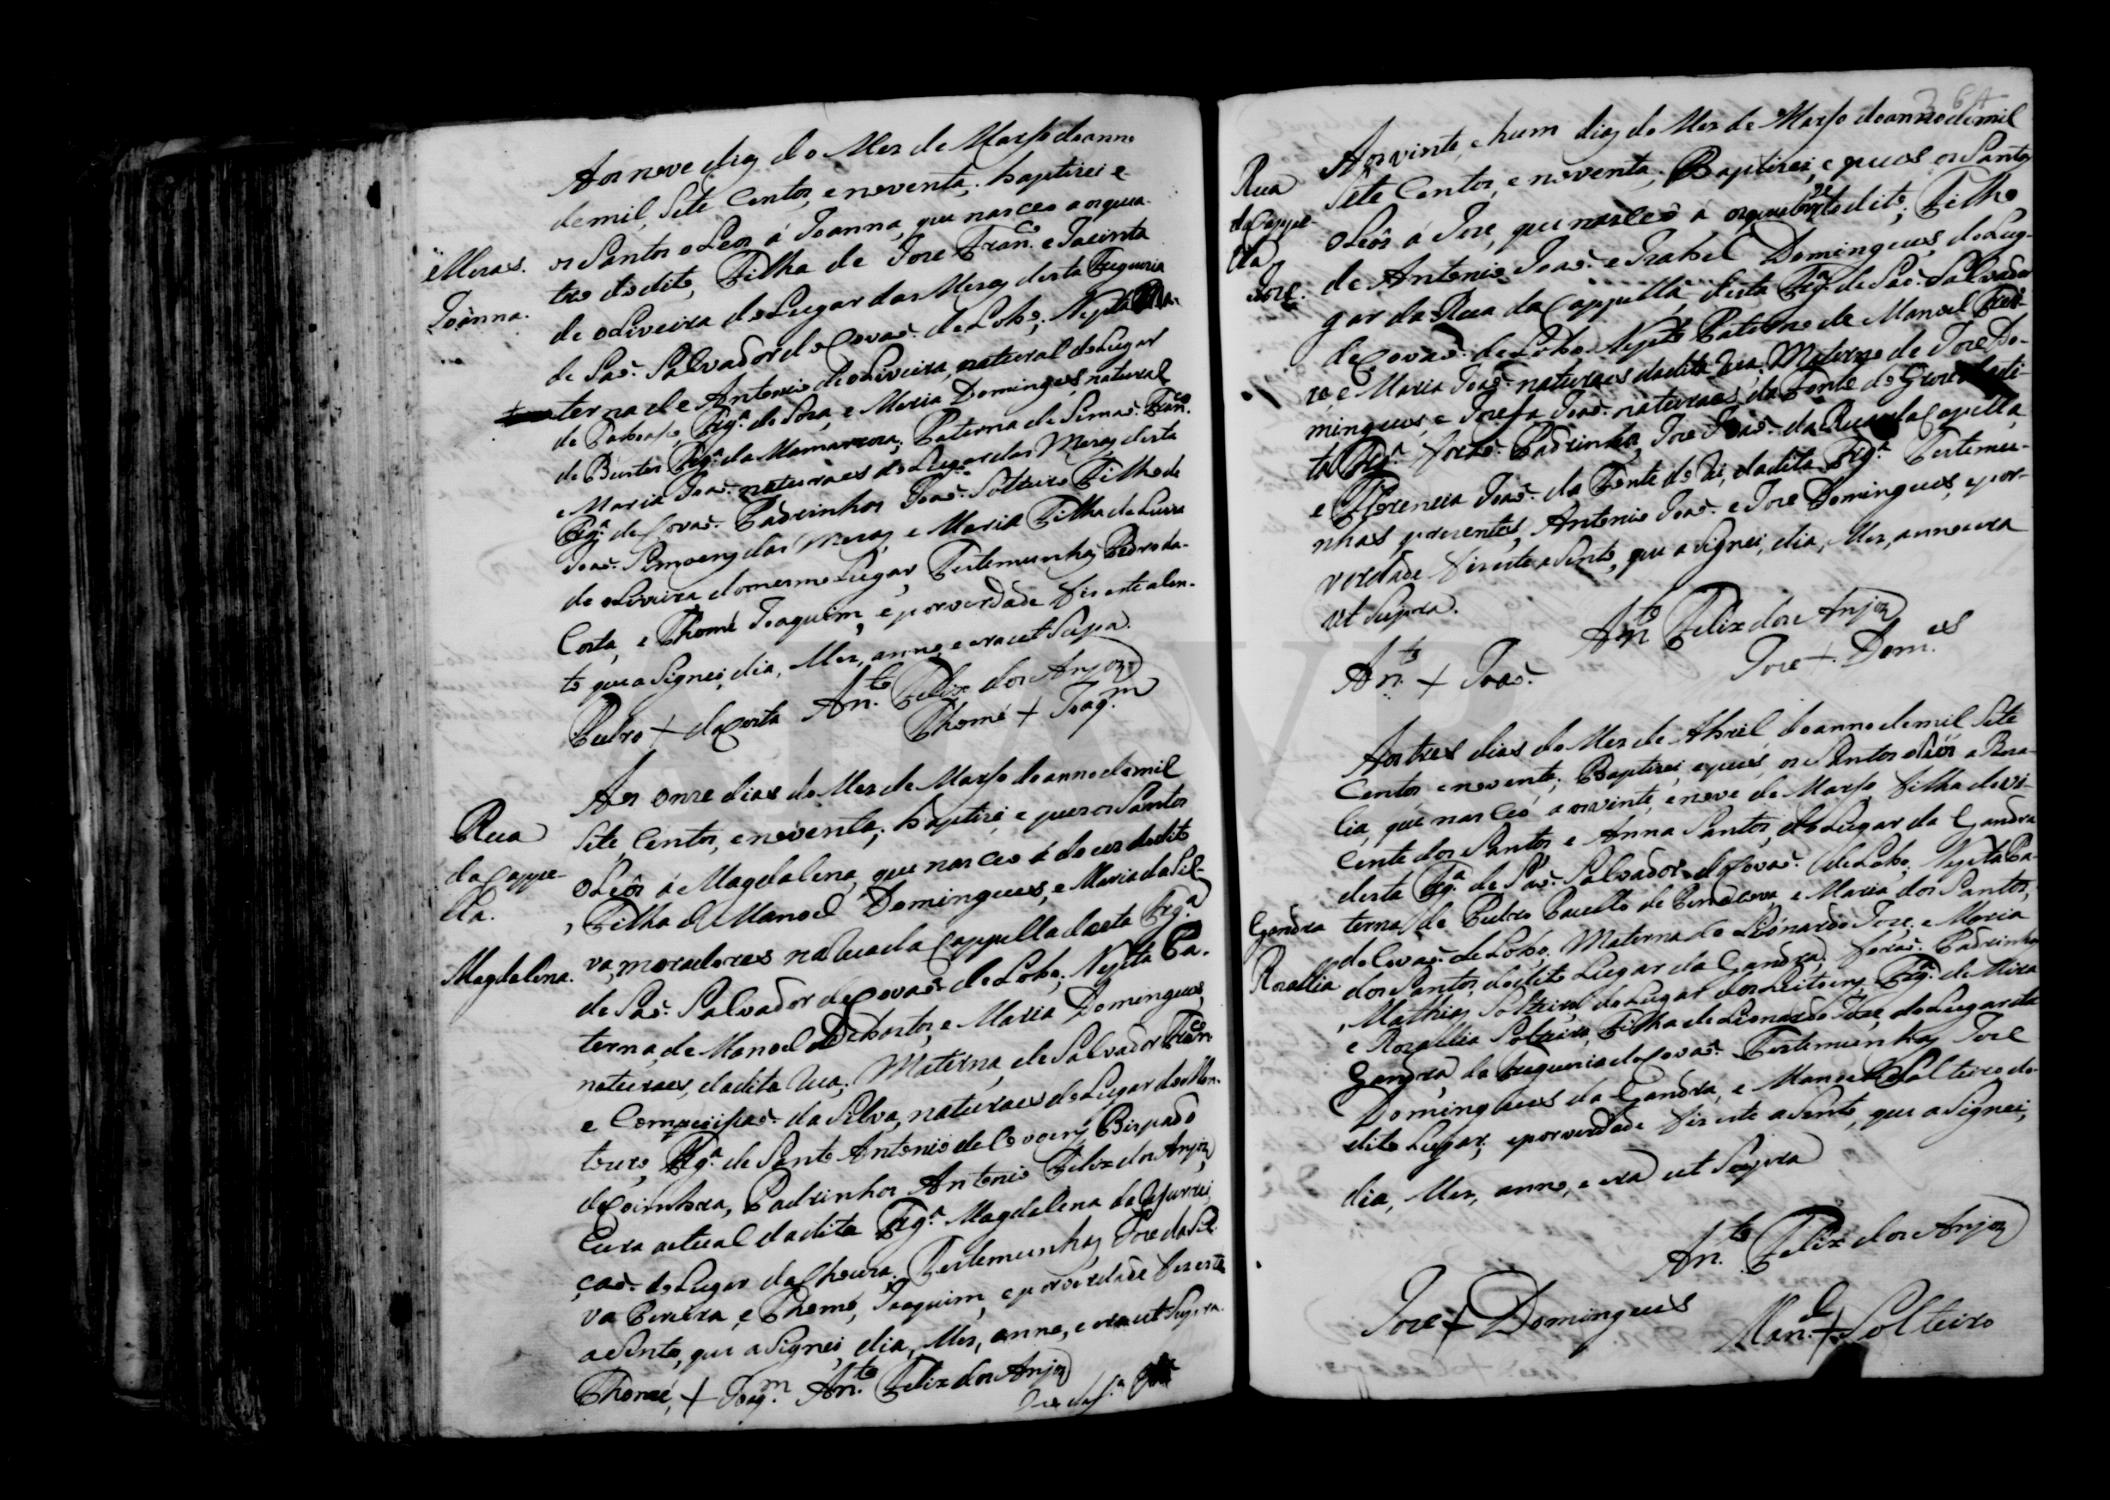 Aos nove dias do Mes de Marso do anno
de mil, Sete Centos, e noventa; baptizei e
os Santos oLeos á Joanna, que nasceo aos qua-
tro do dito, Filha de Joze Fran.co e Jacinta
de oLiveira do Lugar das Mesas desta Freguezia
de Saõ Salvador de Covaõ de Lobo; Nepta Ma-
terna de Antonio de oLiveira, natural do Lugar
de Taboaso, Frg.a de Soza, e Maria Domingues natural
de Bustos Frg.a da Mamarroza; Paterna de Simaõ Fran.co
e Maria Joaõ naturaes do Lugar das Mesas desta
Frg.a de Covaõ. Padrinhos Joaõ Solteiro Filho de
Joaõ Simoens das Mesas, e Maria Filha de Luiza
de oLiveira do mesmo Lugar, Testemunhas Pedro da
Costa, e Thomé Joaquim, e por verdade fis este asen-
to que aSignei, dia, Mes, anno, e era ut Supra.
An.to Felix dos Anjos
Pedro + da Costa Thomé + Joaq.m
Mesas.
Joanna.
Aos onze dias do Mes de Marso do anno de mil
Sete Centos, e noventa; baptizei, e pus os Santos
oLeôs á Magdalena, que nasceo á dous do dito
Filha de Manoel Domingues, e Maria da Sil-
va, moradores na Rua da Cappella desta Frg.a
de Saõ Salvador de Covaõ de Lobo; Nepta Pa-
terna, de Manoel de Bastos, e Maria Domingues,
naturaes, da dita Rua; Materna, de Salvador Fran.co
e Compceisaõ da Silva, naturaes do Lugar do Mon-
touro, Frg.a de Santo Antonio de Covoens Bispado
de Coimbra, Padrinhos Antonio Felix dos Anjos,
Cura actual da dita Frg.a Magdalena da
çaõ do Lugar da Choura. Testemunhas Joze da Sil-
va Pereira, e Thomé, Joaquim, e por verdade fis este
asento, que aSignei, dia, Mes, anno, e era ut Supra.
Thomé, + Joaq.m An.to Felix dos Anjos
Joze da S.a
Rua
da Cappe-
lla.
Magdalena.
Aos vinte, e hum dias do Mes de Marso do anno de mil
Sete Centos, e noventa; Baptizei, e pus os Santos
oLeôs á Joze, que nasceo á do dito; Filho
de Antonio Joaõ e Izabel Domingues, do Lug-
gar da Rua da Cappella, desta Frg.a de Saõ Salvador
de Covaõ de Lobo Nepto Paterno de Manoel
e Maria Joaõ naturaes da dita Rua, Materno de Joze Do-
mingues, e Josefa Joaõ naturaes da Fonte do
ta Frg.a foraõ Padrinhos, Joze Joaõ da Rua da Capella,
e Florencia Joaõ da Fonte do da dita Frg.a Testemu-
nhas prezentes, Antonio Joaõ e Joze Domingues, e por
verdade fis este asento, que aSignei, dia, Mes, anno e era
ut Supra.
An.to Felix dos Anjos
An.to + Joaõ Joze + Dom.es
Rua
da Cappe
lla
Joze.
Aos tres dias do Mes de Abril, do anno de mil Sete
Centos e noventa; Baptizei, e pus, os Santos oLeos a Roza-
lia, que nasceó aos vinte, e nove de Marso Filha de Vi-
cente dos Santos e Anna Santos, do Lugar da Gandra
desta Frg.a de Saõ Salvador de Covaõ de Lobo, Nepta Pa-
terna de Pedro de e Maria dos Santos,
de Covaõ de Lobo, Materna de Leonardo Joze, e Maria
dos Santos, do dito Lugar da Gandra, foraõ Padrinhos
Mathias Solteiro, do Lugar dos Leitoens, Frg.a de Mira
e Rozallia Solteira, Filha de Leonardo Joze, do Lugar da
Gandra, da Freguezia de Covaõ. Testemunhas Joze
Domingues da Gandra, e Manoel Solteiro do
dito Lugar, e por verdade fis este asento, que aSignei,
dia, Mes, anno, e era ut Supra
An.to Felix dos Anjos
Joze + Domingues Man.l + Solteiro
Gandra
Rozallia